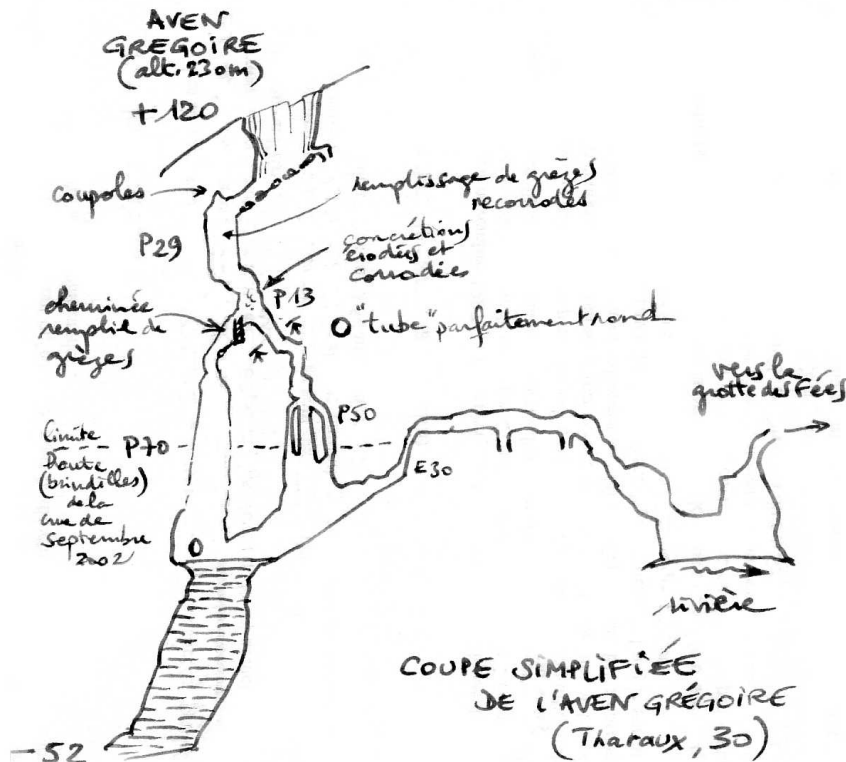 AVEN
GREGOIRE
(alt. 230m)
+120
coupoles
remplissage de grèzes
recorrodés
P29
concrétions
érodées et
corrodées
P13
cheminée
remplie de
grèzes
"tube" parfaitement rond
vers la
grotte des Fées
P50
Limite
haute
(brindilles)
de la
crue de
septembre
2002
P70
E30
rivière
COUPE SIMPLIFIÉE
DE L'AVEN GRÉGOIRE
(Tharaux, 30)
-52